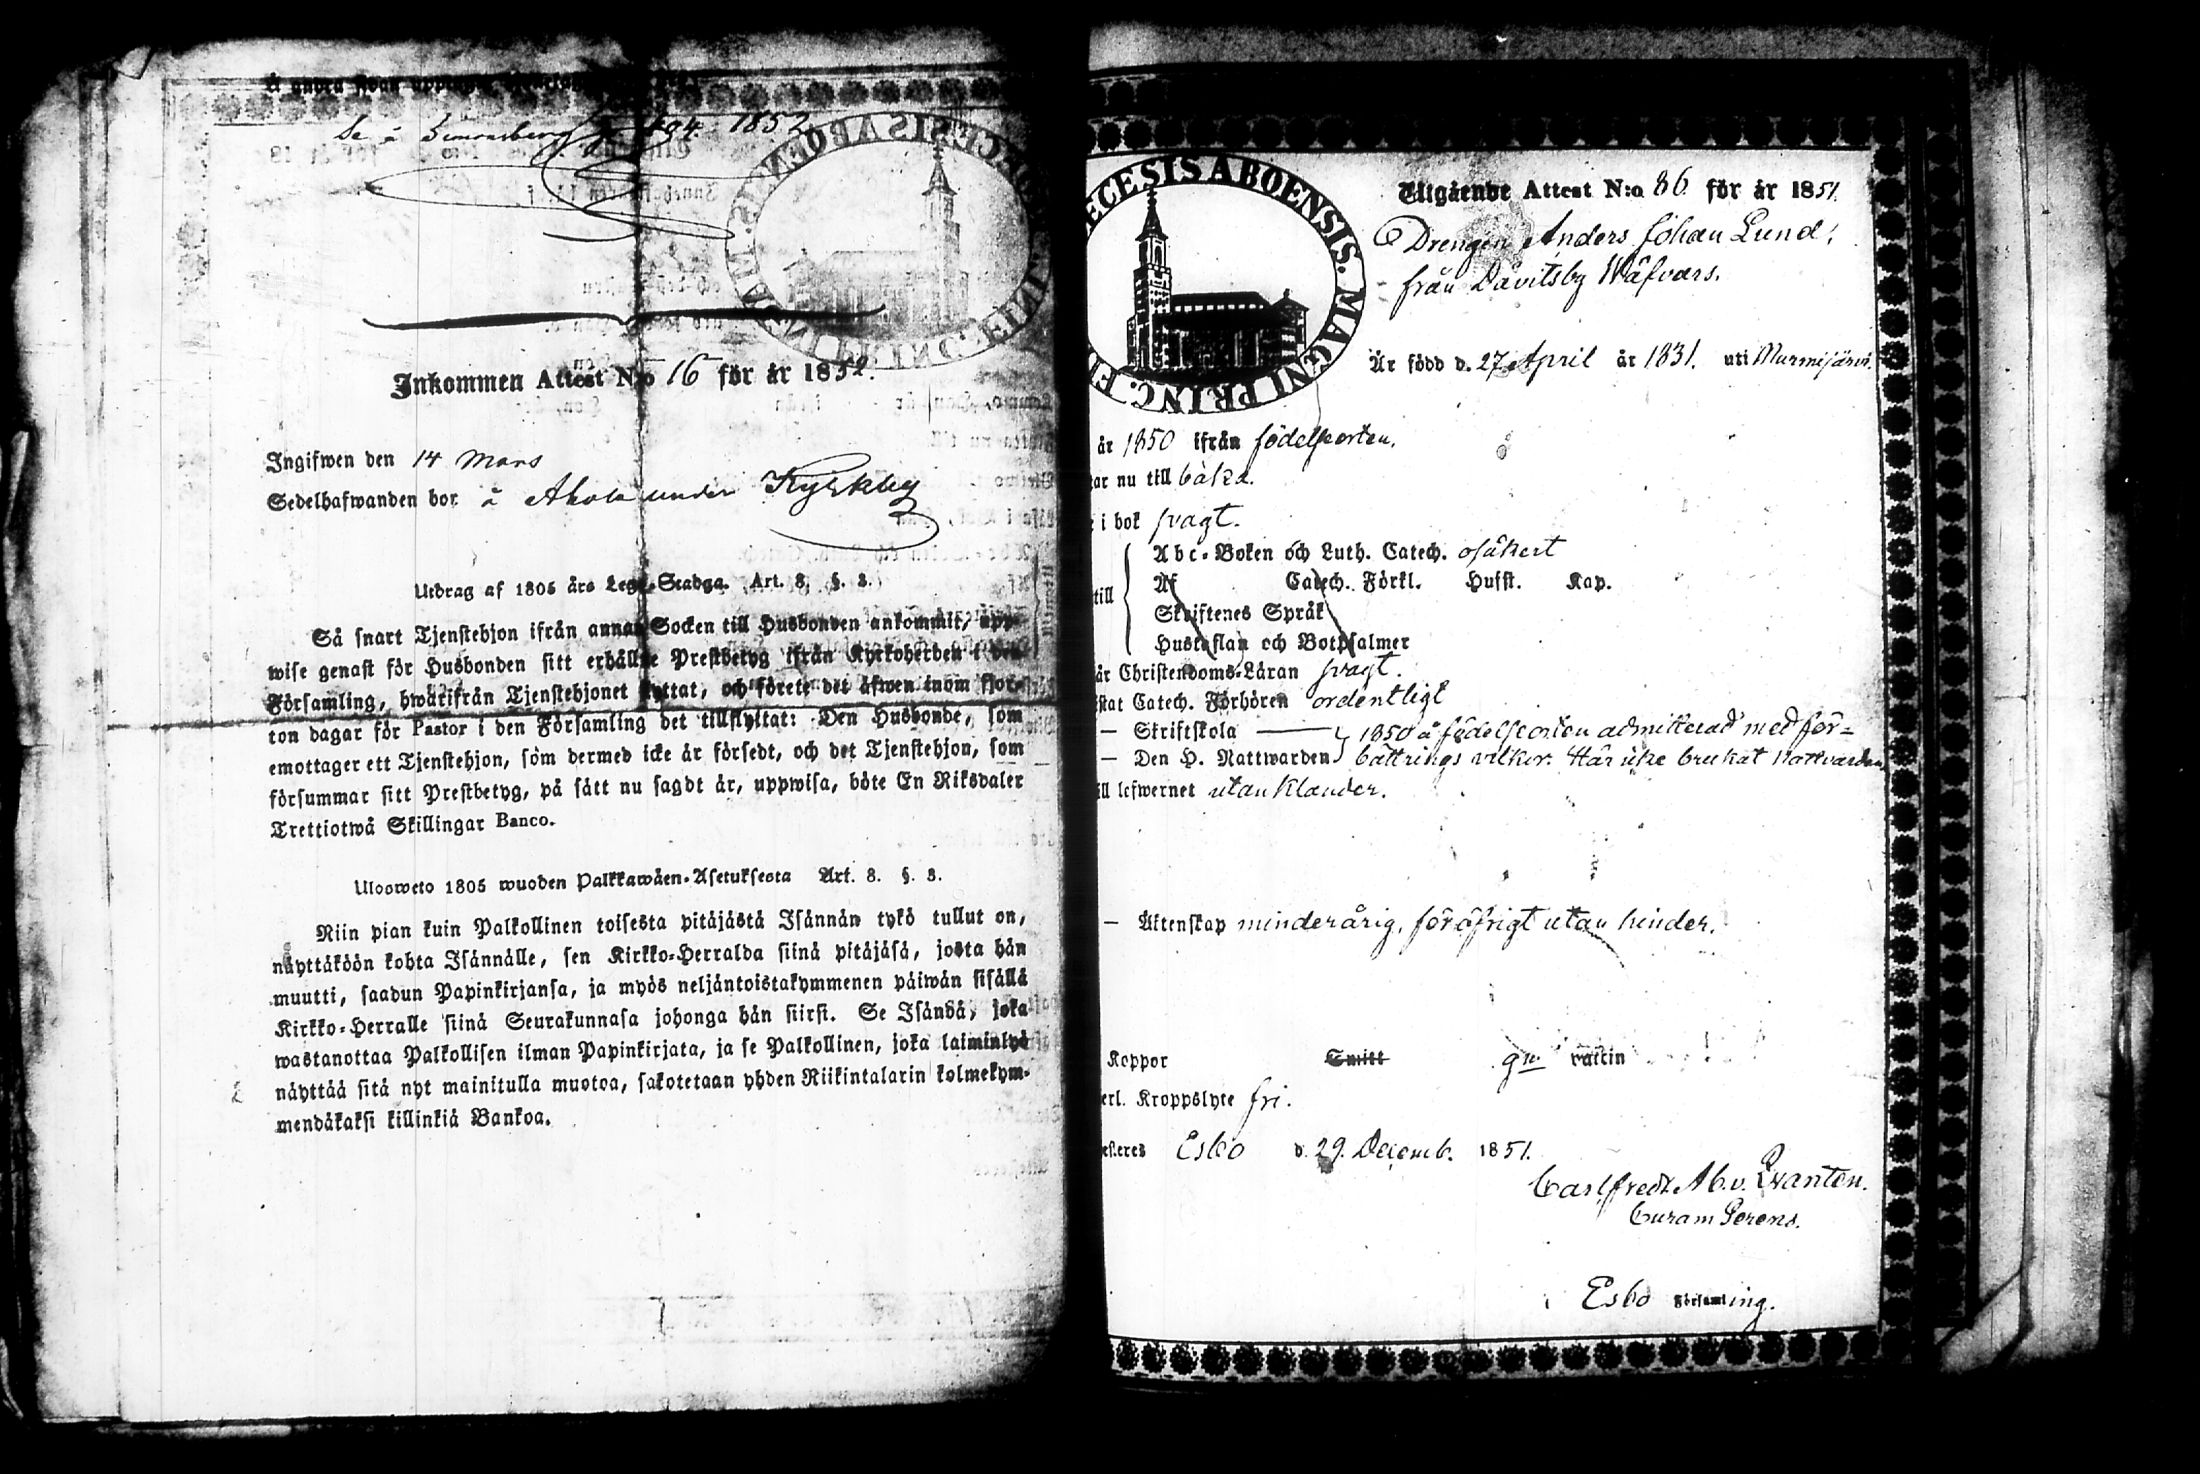 Å andra sidan
Se å 1852
Inkommen Attest N:o 16 för år 1852.
Ingifwen den 14 Mars
Sedelhafwanden bor å Ahola under Kyrkby
Utdrag af 1805 års Lego-Stadga. Art. 8. §. 3.
Så snart Tjenstehjon ifrån annan Socken till Husbonden ankommit, upp-
wise genast för Husbonden sitt erhållne Prestbetyg ifrån Kyrkoherden i den
Församling, hwarifrån Tjenstehjonet flyttat, och förete det äfwen inom fjor-
ton dagar för Pastor i den Församling det tillflyttat: Den Husbonde, som
emottager ett Tjenstehjon, som dermed icke är försedt, och det Tjenstehjon, som
försummar sitt Prestbetyg, på sätt nu sagdt är, uppwisa, böte En Riksdaler
Trettiotwå Skillingar Banco.
Ulosweto 1805 wuoden Palkkawäen-Asetuksesta Art. 8. §. 3.
Niin pian kuin Palkollinen toisesta pitäjästä Isännän tykö tullut on,
näyttäköön kohta Isännälle, sen Kirkko-Herralda siinä pitäjäsä, josta hän
muutti, saadun Papinkirjansa, ja myös neljäntoistakymmenen päiwän sisällä
Kirkko-Herralle siinä Seurakunnasa johonga hän siirsi. Se Isändä, joka
wastanottaa Palkollisen ilman Papinkirjata, ja se Palkollinen, joka laiminlyö
näyttää sitä nyt mainitulla muotoa, sakotetaan yhden Riikintalarin kolmekym-
mendäkaksi killinkiä Bankoa.
ECESIS ABOENSIS. MAGNI PRINC. FI
Utgående Attest N:o 86 för år 1851.
Drengen Anders Johan Lund,
från Davitsby Wäfvars.
Är född d. 27 April år 1831. uti Nurmijärvi.
år 1850 ifrån födelseorten.
ar nu till båka.
i bok svagt.
Abc-Boken och Luth. Catech. osäkert
till Af Catech. Förkl. Husst. Kap.
Skriftenes Språk
Hustaflan och Botpsalmer
är Christendoms-Läran svagt.
stat Catech. Förhören ordentligt
— Skriftskola 1850 å födelseorten admitterad med för-
— Den H. Nattwarden bättrings vilkor. Här icke brukat nattvarden.
ill lefwernet utan klander.
— Äktenskap minderårig, för öfrigt utan hinder.
Koppor Smitt gm vaccin
erl. Kroppslyte fri.
esteres Esbo d. 29. Decemb. 1851.
Carl Fredr. Ab. v. Qvanten.
Curam Gerens.
Esbo Församling.